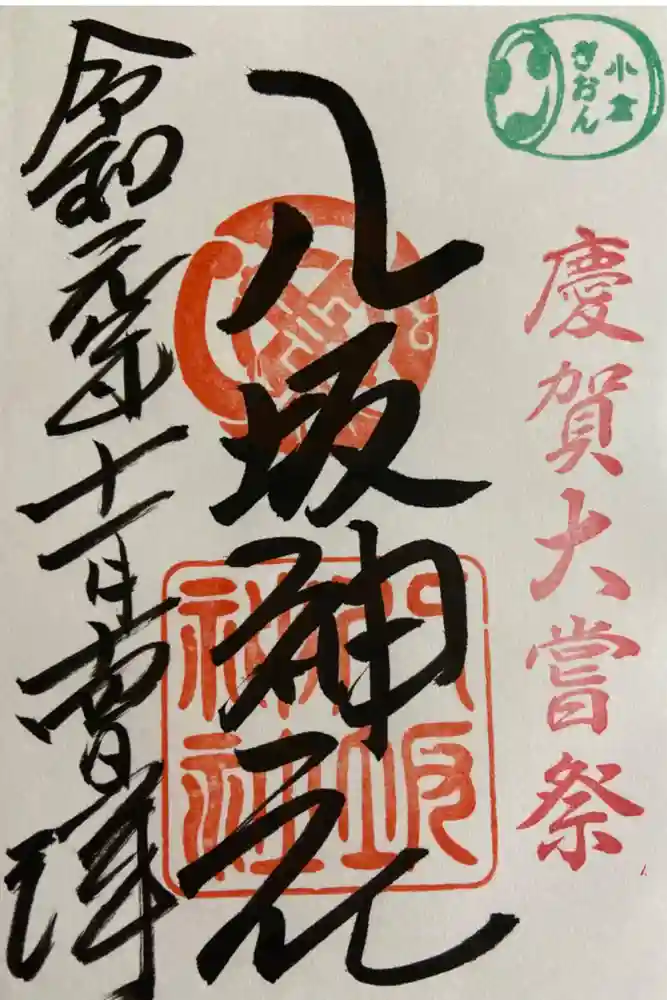 小倉
ぎおん
慶賀大嘗祭
八坂神社
八坂
神社
令和元年十一月